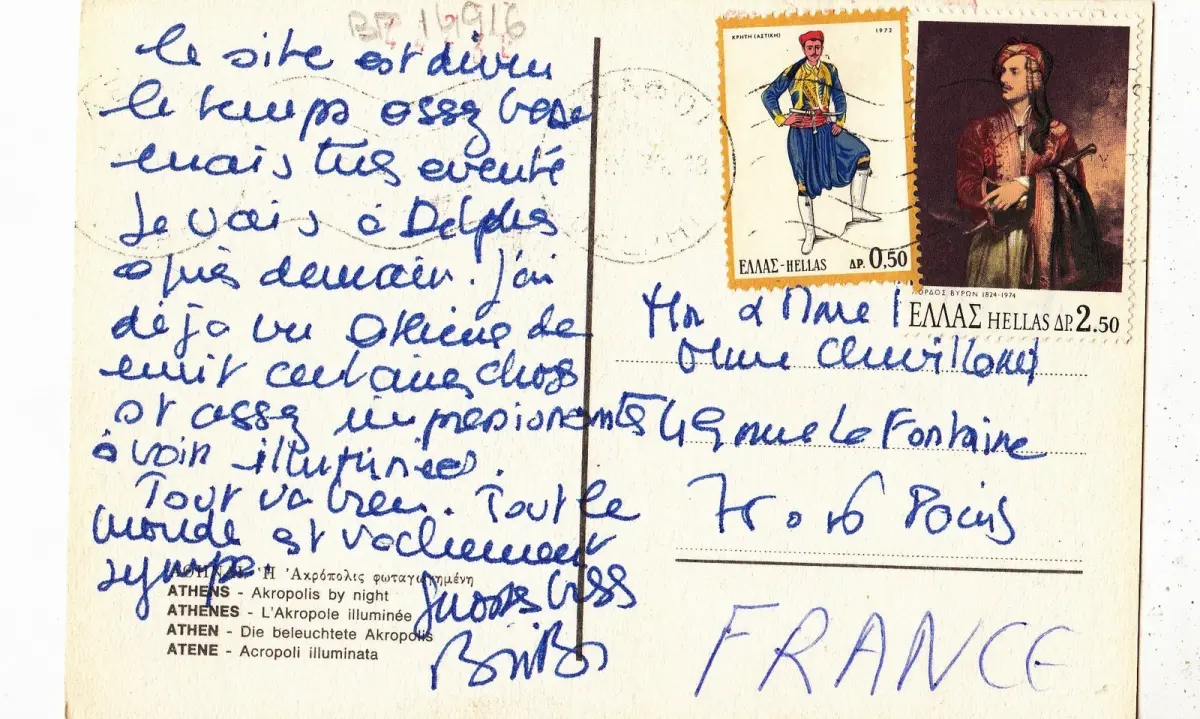 le site est divin
le temps assez beau
mais très eventé
Je vais à Delphes
après demain. J'ai
déjà vu Athène de
nuit certaines choses
st assez impressionantes
à voir illuminées.
Tout va bien. Tout le
monde est vachement
sympa.
Grosses bises
ΑΘΗΝΑΙ - Ἡ Ἀκρόπολις φωταγωγημένη
ATHENS - Akropolis by night
ATHENES - L'Akropole illuminée
ATHEN - Die beleuchtete Akropolis
ATENE - Acropoli illuminata
ΚΡΗΤΗ (ΑΣΤΙΚΗ) 1972
ΕΛΛΑΣ-HELLAS ΔΡ. 0,50
ΛΟΡΔΟΣ ΒΥΡΩΝ 1824-1974
ΕΛΛΑΣ HELLAS ΔΡ. 2.50
Mr & Mme
49 rue La Fontaine
75016 Paris
FRANCE